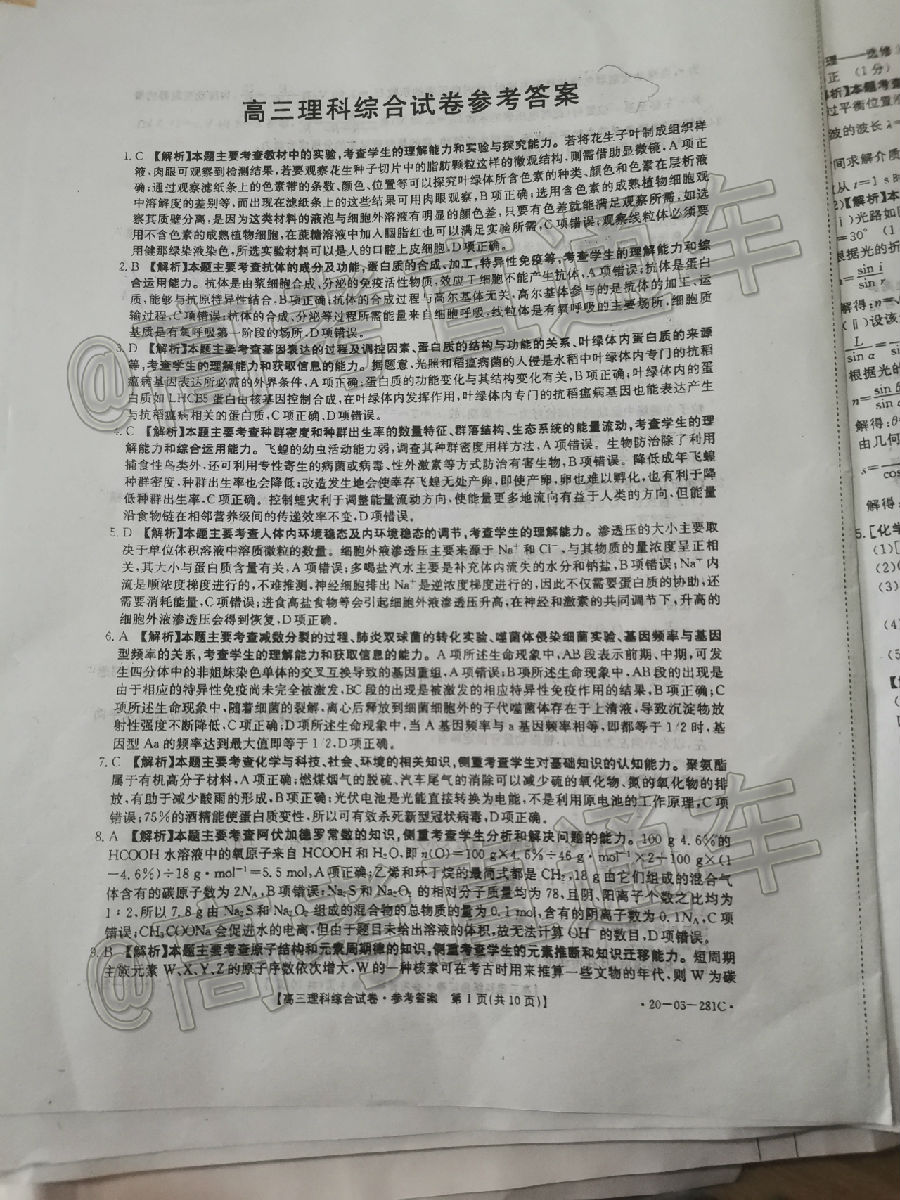 高三理科综合试卷参考答案
1. C 【解析】本题主要考查教材中的实验,考查学生的理解能力和实验与探究能力。若将花生子叶制成组织样
液,肉眼可观察到检测结果,若要观察花生种子切片中的脂肪颗粒这样的微观结构,则需借助显微镜,A项正
确;通过观察滤纸条上的色素带的条数、颜色、位置等可以探究叶绿体所含色素的种类、颜色和色素在层析液
中溶解度的差别等,而出现在滤纸条上的这些结果可用肉眼观察,B项正确;选用含色素的成熟植物细胞观
察其质壁分离,是因为这类材料的液泡与细胞外溶液有明显的颜色差,只要有色差就能满足观察所需,如选
用不含色素的成熟植物细胞,在蔗糖溶液中加入胭脂红也可以满足实验所需,C项错误;观察线粒体必须要
用健那绿染液染色,所选实验材料可以是人的口腔上皮细胞,D项正确。
2. B 【解析】本题主要考查抗体的成分及功能,蛋白质的合成、加工,特异性免疫等,考查学生的理解能力和综
合运用能力。抗体是由浆细胞合成、分泌的免疫活性物质,效应T细胞不能产生抗体,A项错误;抗体是蛋白
质,能够与抗原特异性结合,B项正确;抗体的合成过程与高尔基体无关,高尔基体参与的是抗体的加工、运
输过程,C项错误;抗体的合成、分泌等过程所需能量来自细胞呼吸,线粒体是有氧呼吸的主要场所,细胞质
基质是有氧呼吸第一阶段的场所,D项错误。
3. D 【解析】本题主要考查基因表达的过程及调控因素、蛋白质的结构与功能的关系、叶绿体内蛋白质的来源
等,考查学生的理解能力和获取信息的能力。据题意,光照和稻瘟病菌的入侵是水稻中叶绿体内专门的抗稻
瘟病基因表达所必需的外界条件,A项正确;蛋白质的功能变化与其结构变化有关,B项正确;叶绿体内的蛋
白质如LHCB5蛋白由核基因控制合成,在叶绿体内发挥作用,叶绿体内专门的抗稻瘟病基因也能表达产生
与抗稻瘟病相关的蛋白质,C项正确、D项错误。
4. C 【解析】本题主要考查种群密度和种群出生率的数量特征、群落结构、生态系统的能量流动,考查学生的理
解能力和综合运用能力。飞蝗的幼虫活动能力弱,调查其种群密度用样方法,A项错误。生物防治除了利用
捕食性鸟类外,还可利用专性寄生的病菌或病毒、性外激素等方式防治有害生物,B项错误。降低成年飞蝗
种群密度,种群出生率也会降低;改造发生地会使幸存飞蝗无处产卵,即使产卵,卵也难以孵化,也有利于降
低种群出生率,C项正确。控制蝗灾利于调整能量流动方向,使能量更多地流向有益于人类的方向,但能量
沿食物链在相邻营养级间的传递效率不变,D项错误。
5. D 【解析】本题主要考查人体内环境稳态及内环境稳态的调节,考查学生的理解能力。渗透压的大小主要取
决于单位体积溶液中溶质微粒的数量。细胞外液渗透压主要来源于Na⁺和Cl⁻,与其物质的量浓度呈正相
关,其大小与蛋白质含量有关,A项错误;多喝盐汽水主要是补充体内流失的水分和钠盐,B项错误;Na⁺内
流是顺浓度梯度进行的,不难推测,神经细胞排出Na⁺是逆浓度梯度进行的,因此不仅需要蛋白质的协助,还
需要消耗能量,C项错误;进食高盐食物等会引起细胞外液渗透压升高,在神经和激素的共同调节下,升高的
细胞外液渗透压会得到恢复,D项正确。
6. A 【解析】本题主要考查减数分裂的过程、肺炎双球菌的转化实验、噬菌体侵染细菌实验、基因频率与基因
型频率的关系,考查学生的理解能力和获取信息的能力。A项所述生命现象中,AB段表示前期、中期,可发
生四分体中的非姐妹染色单体的交叉互换导致的基因重组,A项错误;B项所述生命现象中,AB段的出现是
由于相应的特异性免疫尚未完全被激发,BC段的出现是被激发的相应特异性免疫作用的结果,B项正确;C
项所述生命现象中,随着细菌的裂解,离心后释放到细菌细胞外的子代噬菌体存在于上清液,导致沉淀物放
射性强度不断降低,C项正确;D项所述生命现象中,当A基因频率与a基因频率相等,即都等于1/2时,基
因型Aa的频率达到最大值即等于1/2,D项正确。
7. C 【解析】本题主要考查化学与科技、社会、环境的相关知识,侧重考查学生对基础知识的认知能力。聚氨酯
属于有机高分子材料,A项正确;燃煤烟气的脱硫、汽车尾气的消除可以减少硫的氧化物、氮的氧化物的排
放,有助于减少酸雨的形成,B项正确;光伏电池是光能直接转换为电能,不是利用原电池的工作原理,C项
错误;75%的酒精能使蛋白质变性,所以可有效杀死新型冠状病毒,D项正确。
8. A 【解析】本题主要考查阿伏加德罗常数的知识,侧重考查学生分析和解决问题的能力。100 g 4.6%的
HCOOH水溶液中的氧原子来自HCOOH和H₂O,即n(O)=100 g×4.6%÷46 g·mol⁻¹×2+100 g×(1
-4.6%)÷18 g·mol⁻¹=5.5 mol,A项正确;乙烯和环丁烷的最简式都是CH₂,18 g由它们组成的混合气
体含有的碳原子数为2Nₐ,B项错误;Na₂S和Na₂O₂的相对分子质量均为78,且阴、阳离子个数之比均为
1∶2,所以7.8 g由Na₂S和Na₂O₂组成的混合物的总物质的量为0.1 mol,含有的阴离子数为0.1Nₐ,C项
错误;CH₃COONa会促进水的电离,但由于题目未给出溶液的体积,故无法计算OH⁻的数目,D项错误。
9. B 【解析】本题主要考查原子结构和元素周期律的知识,侧重考查学生的元素推断和知识迁移能力。短周期
主族元素W、X、Y、Z的原子序数依次增大,W的一种核素可在考古时用来推算一些文物的年代,则W为碳
【高三理科综合试卷·参考答案 第1页(共10页)】
·20-03-281C·
@高考直通车
@高考直通车
理——选修3
正 (1分)
析】本题考查
过平衡位置
波的波长λ=
间求解介质
从t=1 s时
2)【解析】本
ⅰ)光路如
=30° (1
根据光的折
n=sin i
解得:n=√
(ⅱ)设该
L
sin α
根据光的
n=sin θ
sin α
解得:θ
由几何
s=
cos
解得:
5.[化学
(1)[
(2)(
(3)
(4)
(5